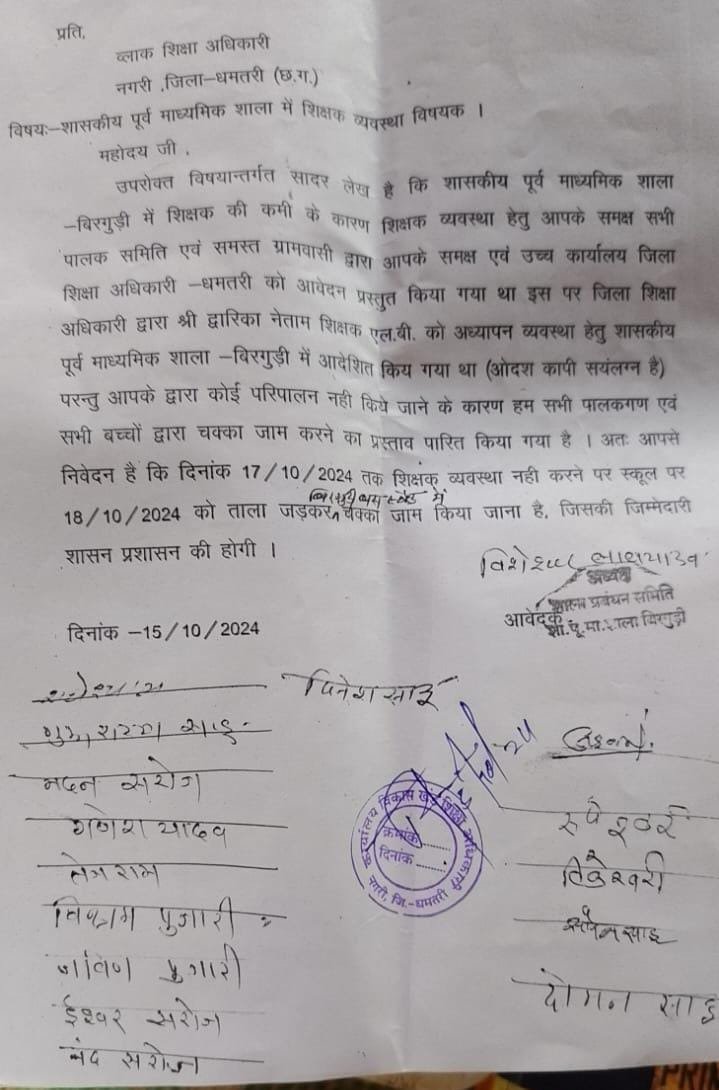 प्रति,
व्लाक शिक्षा अधिकारी
नगरी ,जिला–धमतरी (छ.ग.)
विषयः–शासकीय पूर्व माध्यमिक शाला में शिक्षक व्यवस्था विषयक ।
महोदय जी ,
उपरोक्त विषयान्तर्गत सादर लेख है कि शासकीय पूर्व माध्यमिक शाला
–बिरगुडी में शिक्षक की कमी के कारण शिक्षक व्यवस्था हेतु आपके समक्ष सभी
पालक समिति एवं समस्त ग्रामवासी द्वारा आपके समक्ष एवं उच्च कार्यालय जिला
शिक्षा अधिकारी –धमतरी को आवेदन प्रस्तुत किया गया था इस पर जिला शिक्षा
अधिकारी द्वारा श्री द्वारिका नेताम शिक्षक एल.बी. को अध्यापन व्यवस्था हेतु शासकीय
पूर्व माध्यमिक शाला –बिरगुडी में आदेशित किय गया था (ओदश कापी सयंलग्न है)
परन्तु आपके द्वारा कोई परिपालन नही किये जाने के कारण हम सभी पालकगण एवं
सभी बच्चों द्वारा चक्का जाम करने का प्रस्ताव पारित किया गया है । अतः आपसे
निवेदन है कि दिनांक 17/10/2024 तक शिक्षक व्यवस्था नही करने पर स्कूल पर
में
18/10/2024 को ताला जड़कर चक्का जाम किया जाना है, जिसकी जिम्मेदारी
शासन प्रशासन की होगी ।
अध्यक्ष
शाला प्रबंधन समिति
आवेदक
शा.पू.मा.शाला बिरगुडी
दिनांक –15/10/2024
दिनेश साहू
मदन सरोज
गणेश यादव
रुपेश्वरी
तेजराम
टिकेश्वरी
पुजारी
पुजारी
दोमन साहू
ईश्वर सरोज
नंद सरोज
कार्यालय विकास खंड शिक्षा अधिकारी
क्रमांक
दिनांक
नगरी, जि.-धमतरी